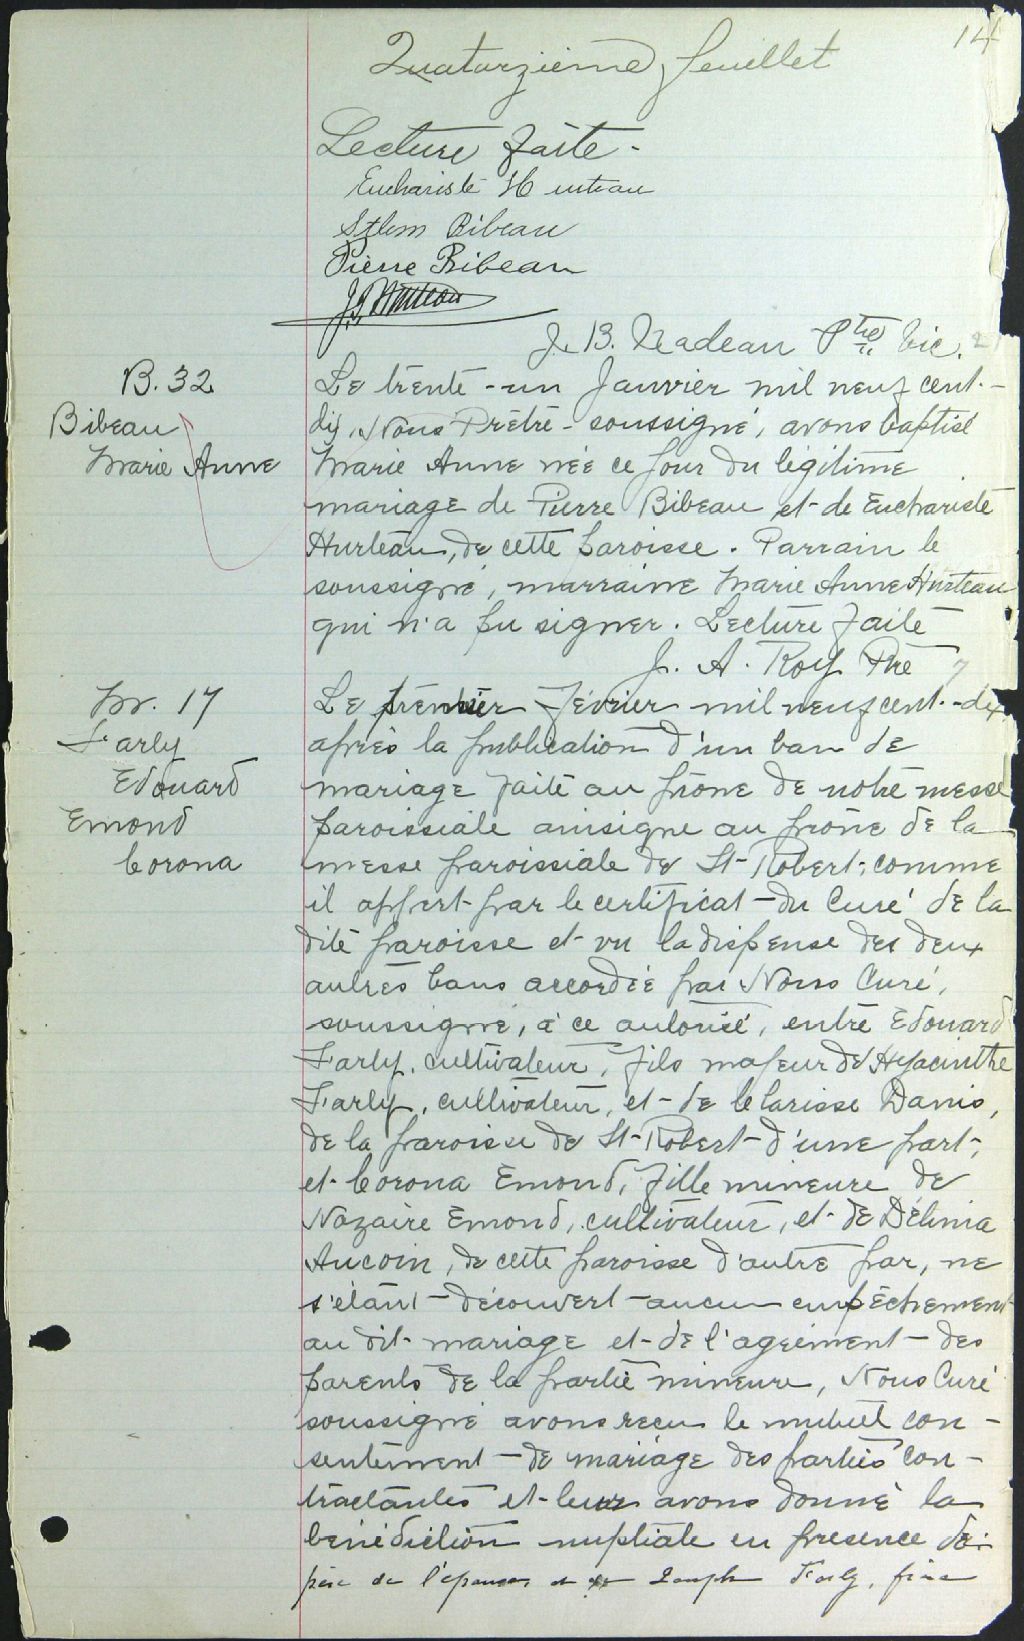 14
Quatorzième feuillet
Lecture faite -
Euchariste Hurteau
Pierre Bibeau
J. B. Nadeau Ptre Vic.
B. 32
Bibeau
Marie Anne
Le trente-un Janvier mil neuf cent-
dix, Nous Prêtre-soussigné, avons baptisé
Marie Anne née ce jour du légitime
mariage de Pierre Bibeau et de Euchariste
Hurteau, de cette paroisse. Parrain le
soussigné, marraine Marie Anne Hurteau
qui n'a pu signer. Lecture faite
J. A. Roy Ptre
M. 17
Farly
Edouard
Emond
Corona
Le premier Février mil neuf cent-dix
après la publication d'un ban de
mariage faite au prône de notre messe
paroissiale ainsi que au prône de la
messe paroissiale de St-Robert, comme
il appert par le certificat du Curé de la
dite paroisse et vu la dispense des deux
autres bans accordée par Nous Curé,
soussigné, à ce autorisé, entre Edouard
Farly, cultivateur, fils majeur de Hyacinthe
Farly, cultivateur, et de Clarisse Danis,
de la paroisse de St-Robert d'une part,
et Corona Emond, fille mineure de
Nazaire Emond, cultivateur, et de Délima
Aucoin, de cette paroisse d'autre par, ne
s'étant découvert aucun empêchement
au dit mariage et de l'agrément des
parents de la partie mineure, Nous Curé
soussigné avons reçu le mutuel con-
sentement de mariage des parties con-
tractantes et leur avons donné la
bénédiction nuptiale en présence de
père de l'époux et Joseph Farly, frère